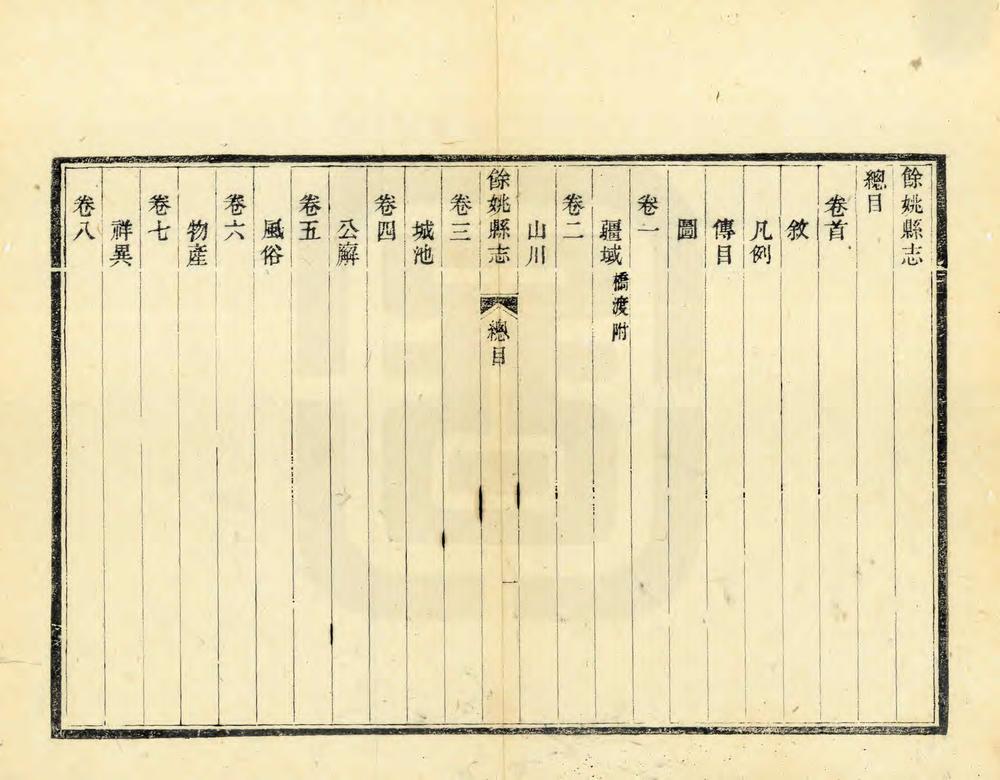 餘姚縣志
總目
卷首
敘
凡例
傳目
圖
卷一
疆域橋渡附
卷二
山川
餘姚縣志 總目 一
卷三
城池
卷四
公廨
卷五
風俗
卷六
物產
卷七
祥異
卷八